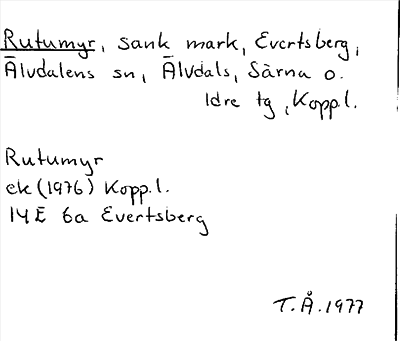 Rutumyr, sank mark, Evertsberg,
Älvdalens sn, Älvdals, Särna o.
Idre tg, Kopp.l.
Rutumyr
ek (1976) Kopp.l.
14E 6a Evertsberg
T.Å. 1977